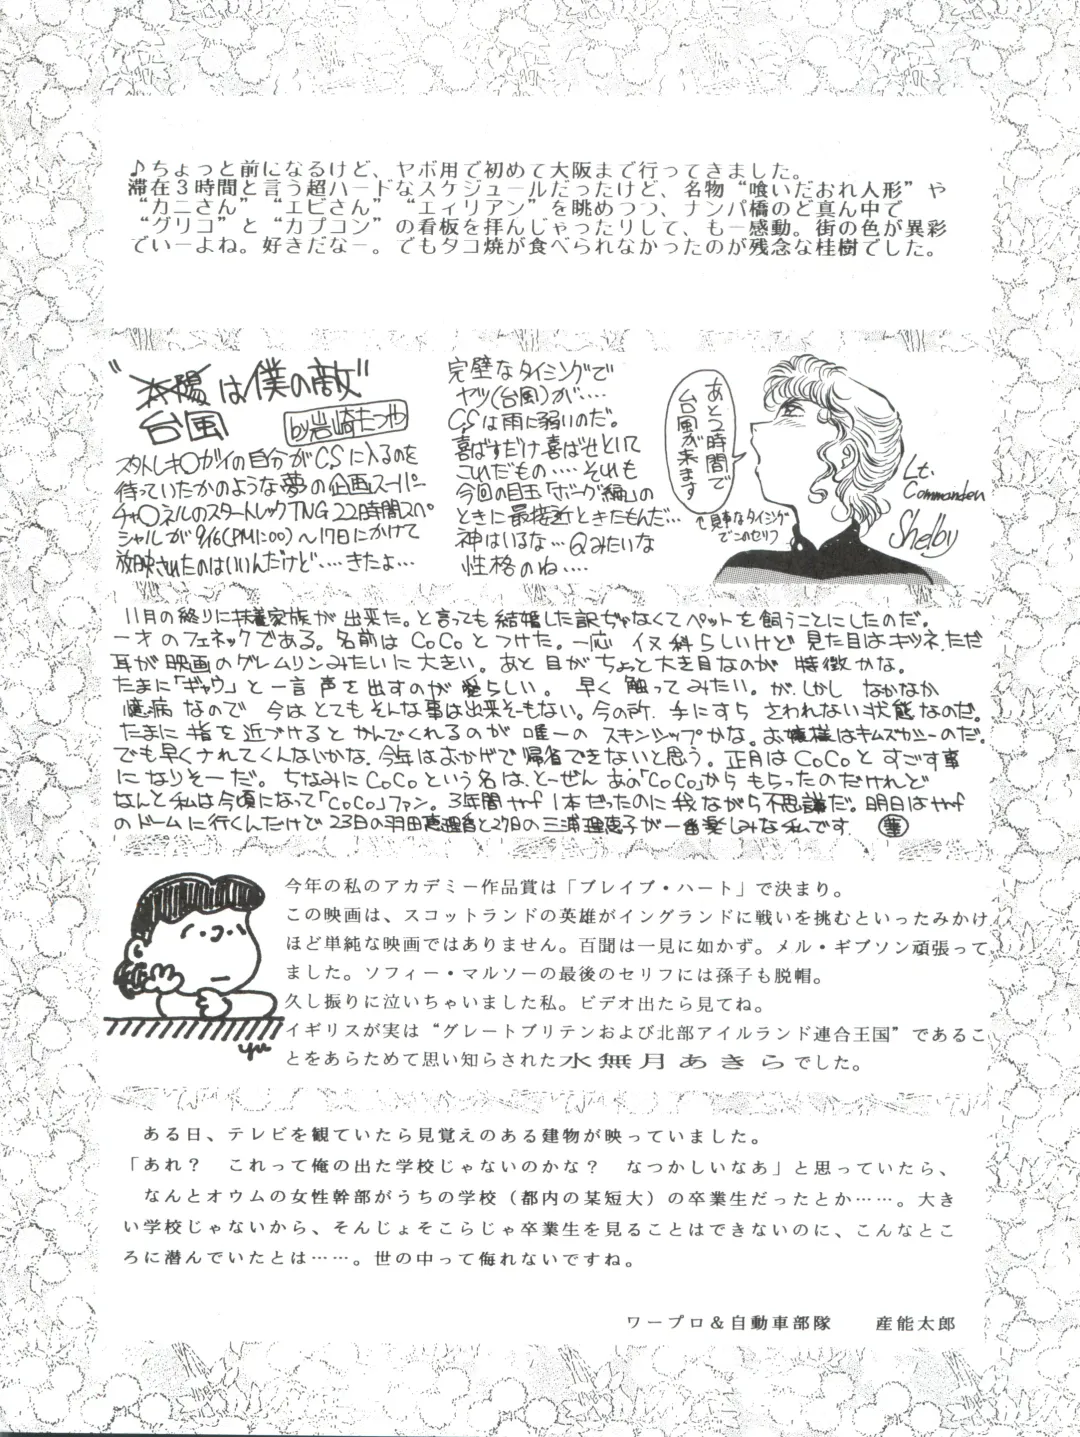 ♪ちょっと前になるけど、ヤボ用で初めて大阪まで行ってきました。
滞在３時間と言う超ハードなスケジュールだったけど、名物“喰いだおれ人形”や
“カニさん”“エビさん”“エィリアン”を眺めつつ、ナンパ橋のど真ん中で
“グリコ”と“カプコン”の看板を拝んじゃったりして、もー感動。街の色が異彩
でいーよね。好きだなー。でもタコ焼が食べられなかったのが残念な桂樹でした。
"太陽は僕の敵"
台風
by岩崎たつや
スタトレキ○ガイの自分がCSに入るのを
待っていたかのような夢の企画スーパー
チャ○ネルのスタートレックTNG22時間スペ
シャルが9/16(PM1:00)〜17日にかけて
放映されたのはいいんだけど‥‥きたよ…
完璧なタイミングで
ヤツ(台風)が‥‥
CSは雨に弱いのだ。
喜ばすだけ喜ばせといて
これだもの‥‥それも
今回の目玉「ボーグ編」の
ときに最接近ときたもんだ…
神はいるな…Qみたいな
性格のね‥‥
あと2時間で
台風が来ます
↑見事なタイミング
でこのセリフ
Lt.
Commander
Shelby
11月の終りに扶養家族が出来た。と言っても結婚した訳ぢゃなくてペットを飼うことにしたのだ。
一才のフェネックである。名前はCoCoとつけた。一応イヌ科らしいけど見た目はキツネ、ただ
耳が映画のグレムリンみたいに大きい。あと目がちょっと大き目なのが特徴かな。
たまに「ギャウ」と一言声を出すのが愛らしい。早く触ってみたい。が、しかしなかなか
臆病なので今はとてもそんな事は出来そーもない。今の所、手にすらさわれない状態なのだ。
たまに指を近づけるとかんでくれるのが唯一のスキンシップかな。お嬢様はキムズカシーのだ。
でも早くナれてくんないかな。今年はおかげで帰省できないと思う。正月はCoCoとすごす事
になりそーだ。ちなみにCoCoという名は、とーぜんあの「CoCo」からもらったのだけれど
なんと私は今頃になって「CoCo」ファン。3年間ゃf1本だったのに我ながら不思議だ。明日はゃf
のドームに行くんだけど23日の羽田恵理香と27日の三浦理恵子が一番楽しみな私です。㊟華
今年の私のアカデミー作品賞は「ブレイブ・ハート」で決まり。
この映画は、スコットランドの英雄がイングランドに戦いを挑むといったみかけ
ほど単純な映画ではありません。百聞は一見に如かず。メル・ギブソン頑張って
ました。ソフィー・マルソーの最後のセリフには孫子も脱帽。
久し振りに泣いちゃいました私。ビデオ出たら見てね。
イギリスが実は“グレートブリテンおよび北部アイルランド連合王国”であるこ
とをあらためて思い知らされた水無月あきらでした。
yu
ある日、テレビを観ていたら見覚えのある建物が映っていました。
「あれ？　これって俺の出た学校じゃないのかな？　なつかしいなあ」と思っていたら、
なんとオウムの女性幹部がうちの学校（都内の某短大）の卒業生だったとか……。大き
い学校じゃないから、そんじょそこらじゃ卒業生を見ることはできないのに、こんなとこ
ろに潜んでいたとは……。世の中って侮れないですね。
ワープロ＆自動車部隊　　産能太郎